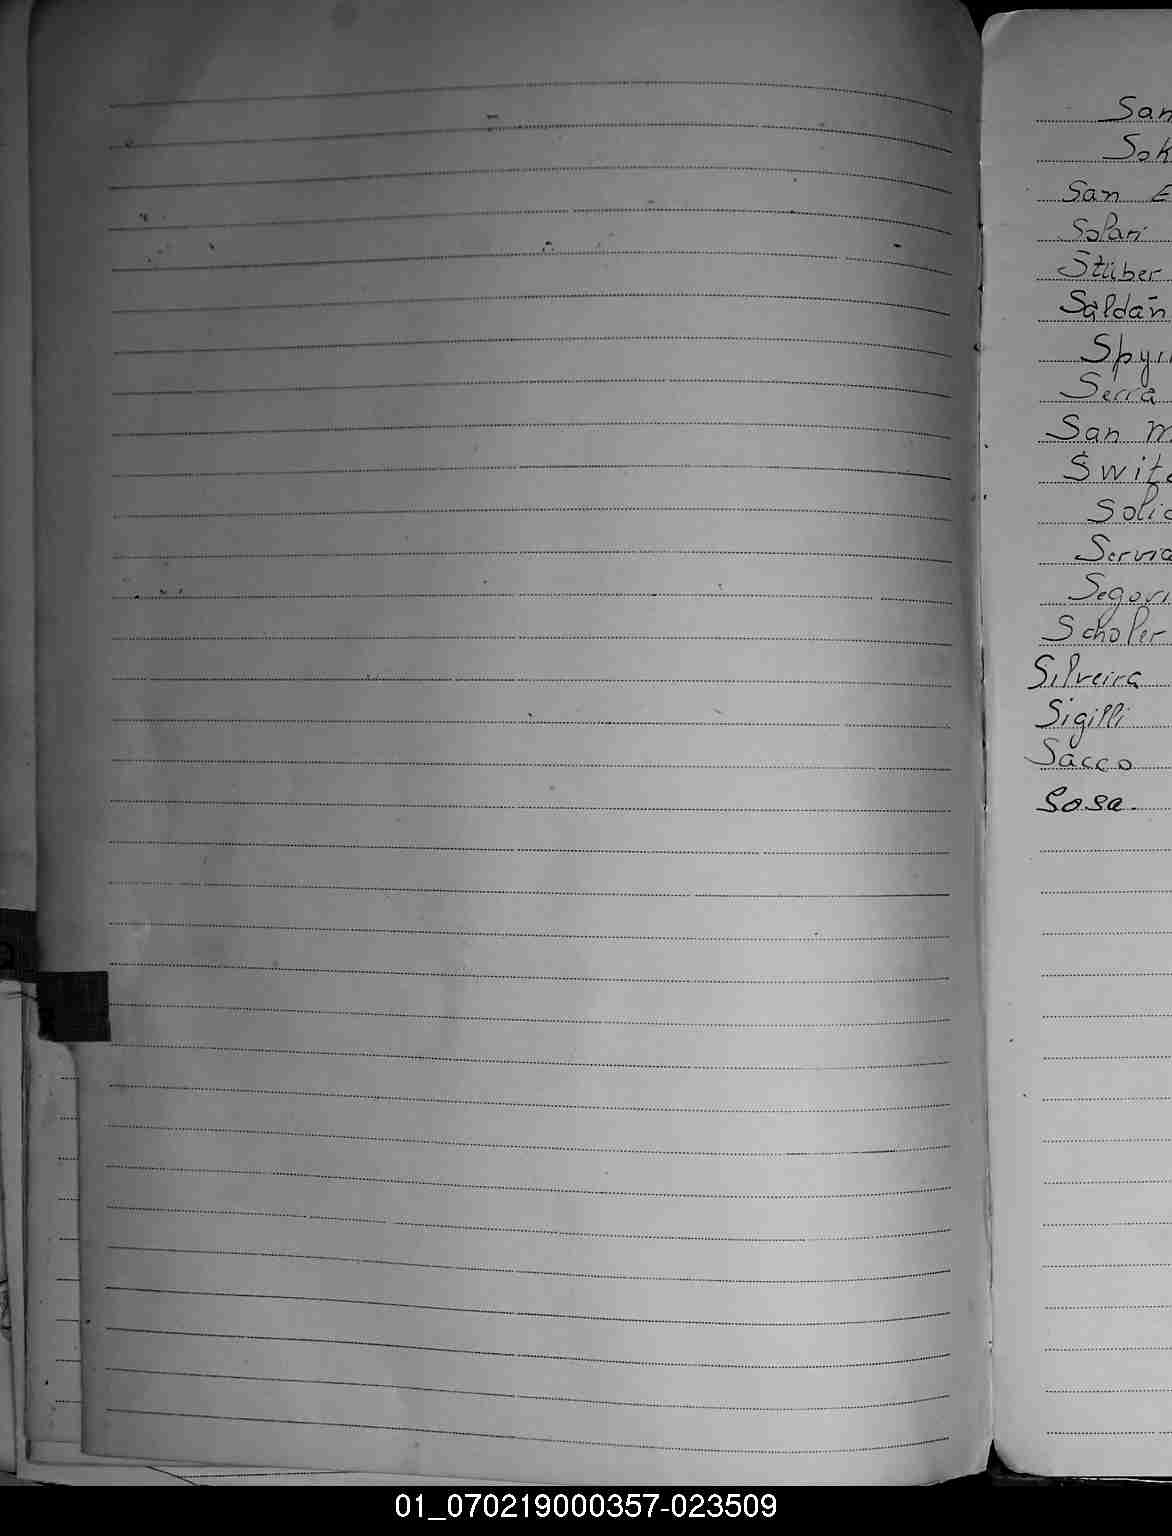 San
Sok
San E
Solari
Stüber
Saldañ
Spyr
Serra
San M
Switz
Solic
Servia
Segovi
Scholer
Silveira
Sigilli
Sacco
Sosa.
01_070219000357-023509